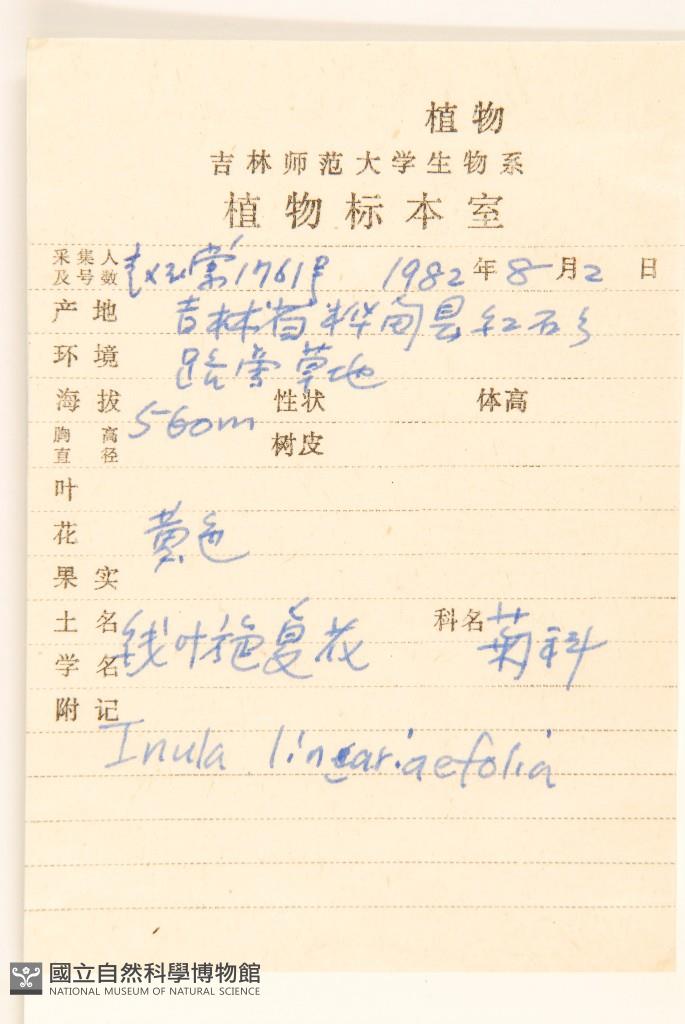 植物
吉林师范大学生物系
植物标本室
采集人及号数 赵 1761号 1982年8月2日
产地 吉林省桦甸县红石乡
环境 路旁草地
海拔 560m 性状 体高
胸高直径 树皮
叶
花 黄色
果实
土名 线叶旋复花 科名 菊科
学名
附记
Inula lincariaefolia
國立自然科學博物館
NATIONAL MUSEUM OF NATURAL SCIENCE